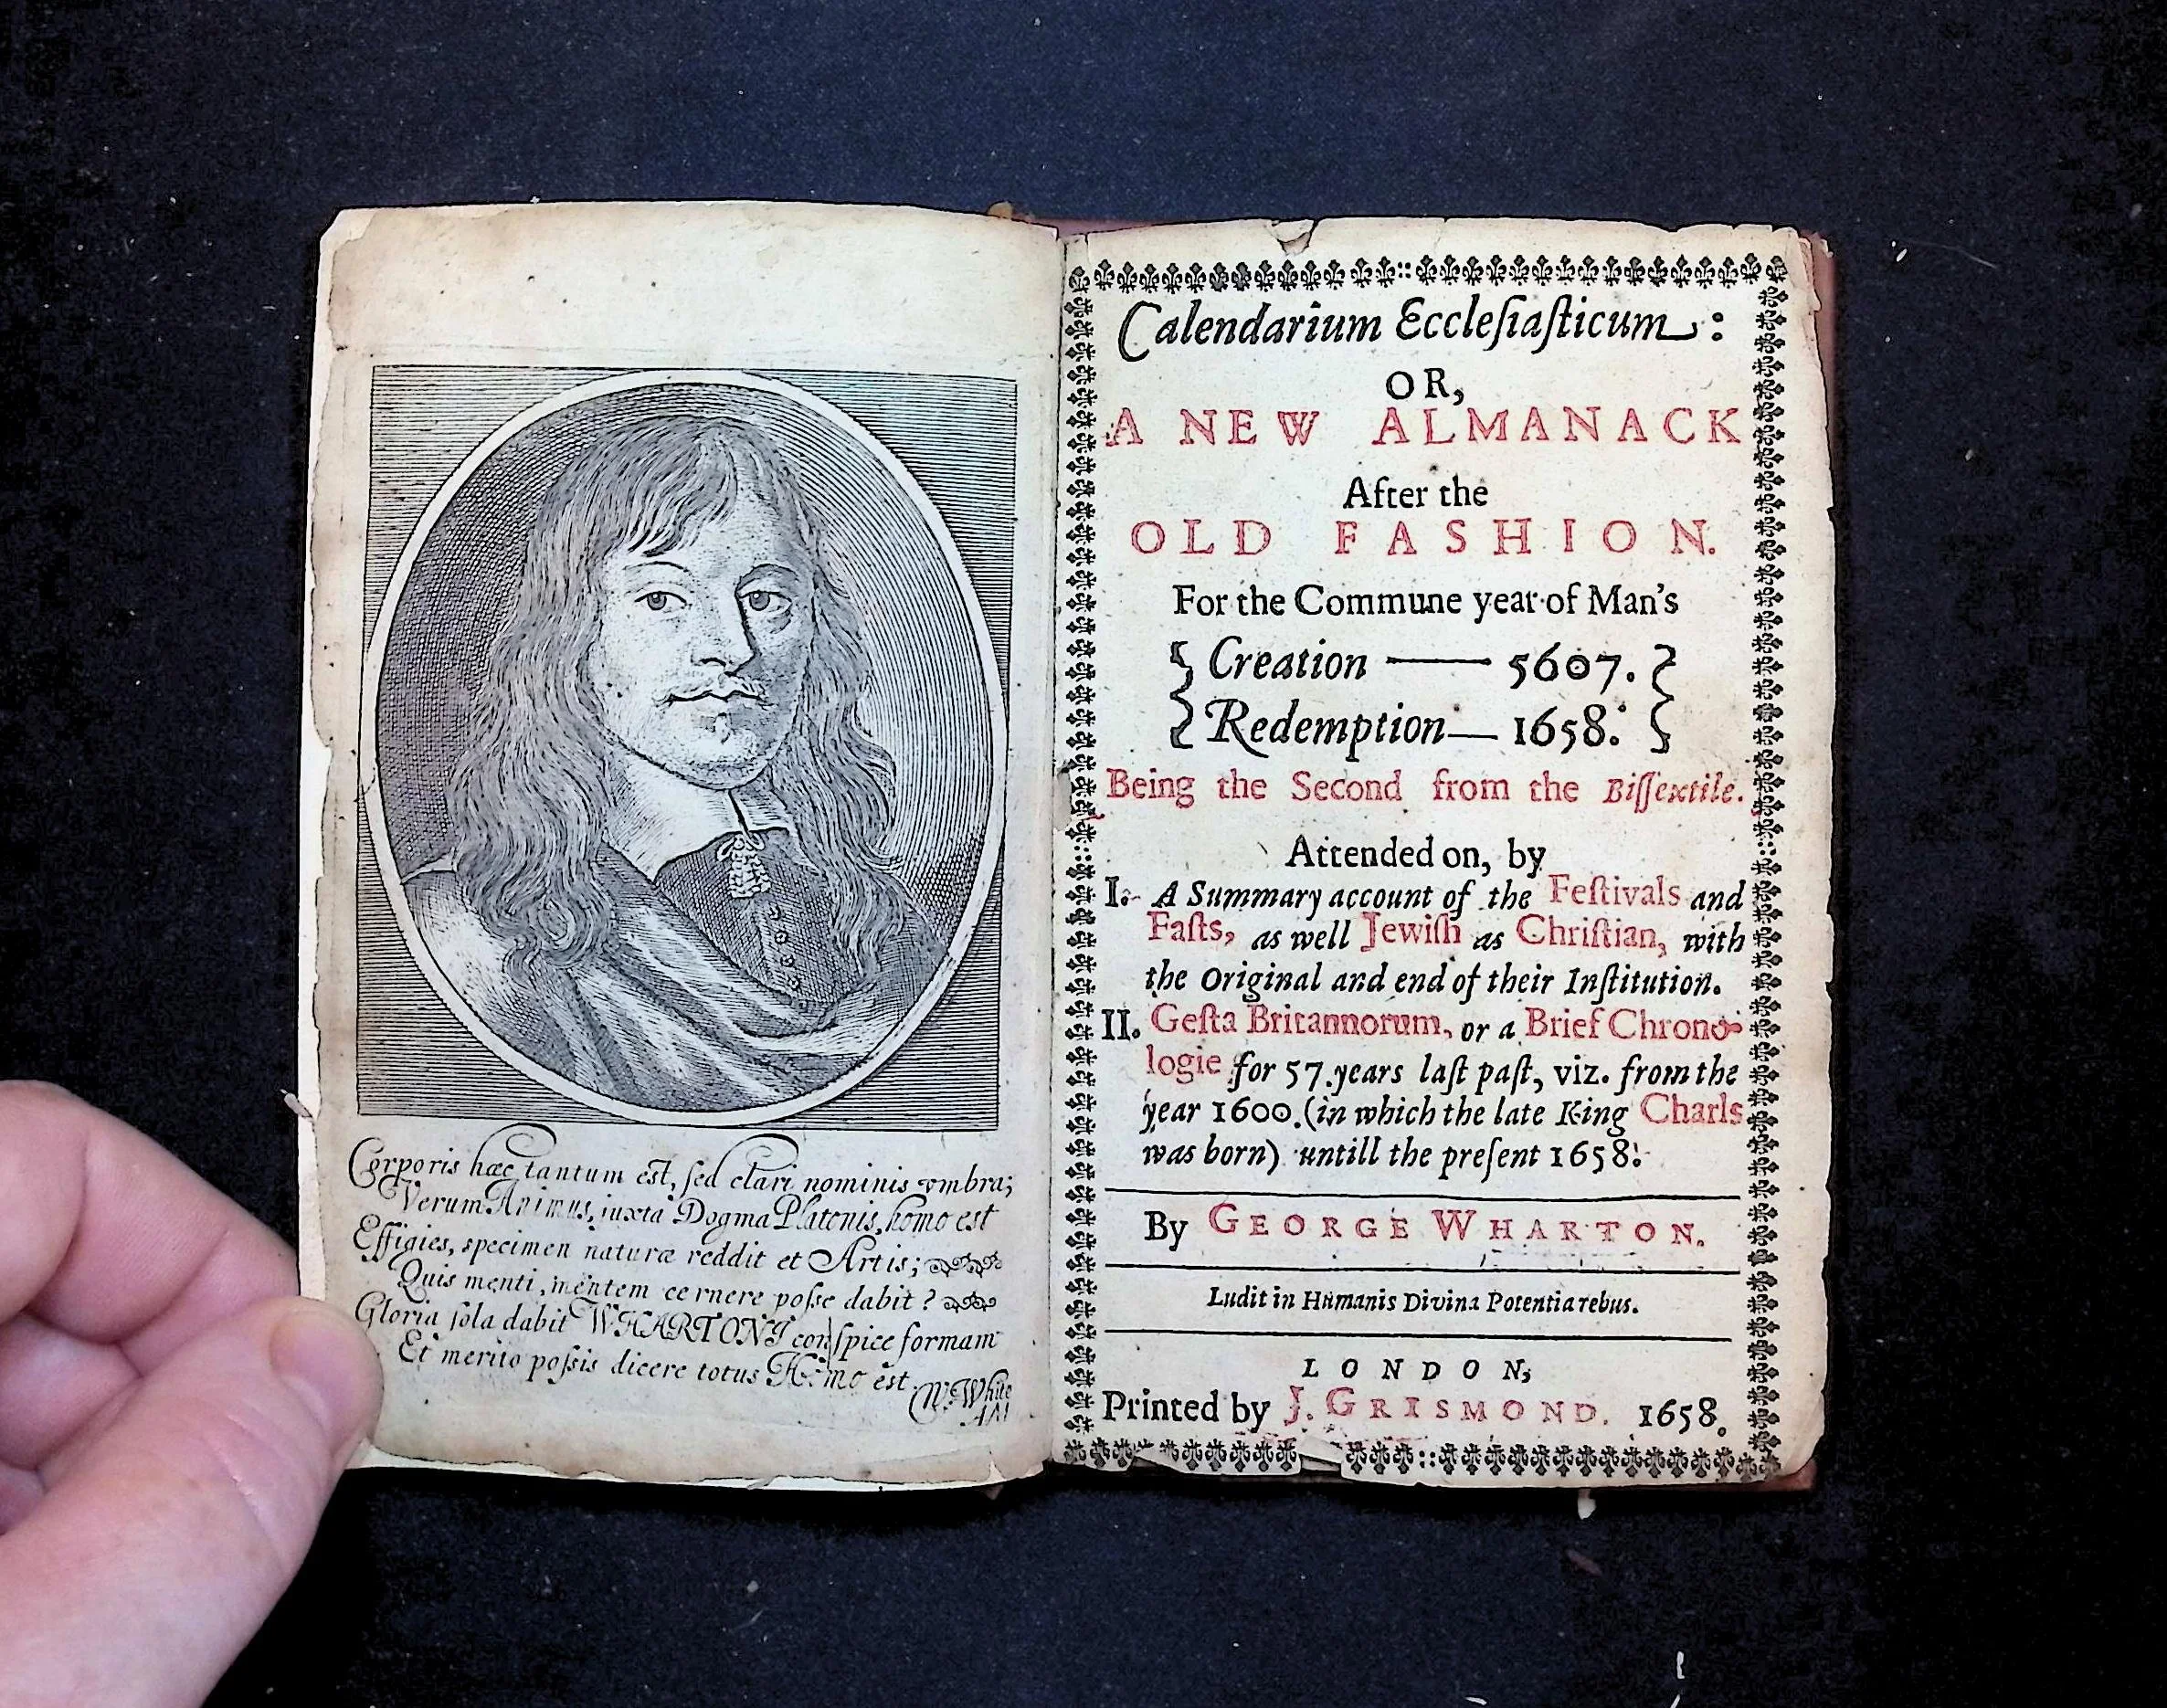 Corporis hæc tantum est, ſed clari nominis vmbra;
Verum Animus, iuxta Dogma Platonis, homo est
Effigies, specimen naturæ reddit et Artis;
Quis menti, mentem cernere poſse dabit?
Gloria ſola dabit WHARTONI conſpice formam
Et merito poſsis dicere totus Homo est.
White
Calendarium Eccleſiaſticum:
OR,
A NEW ALMANACK
After the
OLD FASHION.
For the Commune year of Man's
Creation —— 5607.
Redemption— 1658.
Being the Second from the Biſſextile.
Attended on, by
I. A Summary account of the Feſtivals and
Faſts, as well Jewiſh as Chriſtian, with
the Original and end of their Inſtitution.
II. Geſta Britannorum, or a Brief Chrono-
logie for 57. years laſt paſt, viz. from the
year 1600. (in which the late King Charls
was born) untill the preſent 1658.
By GEORGE WHARTON.
Ludit in Humanis Divina Potentia rebus.
LONDON,
Printed by J. GRISMOND. 1658.